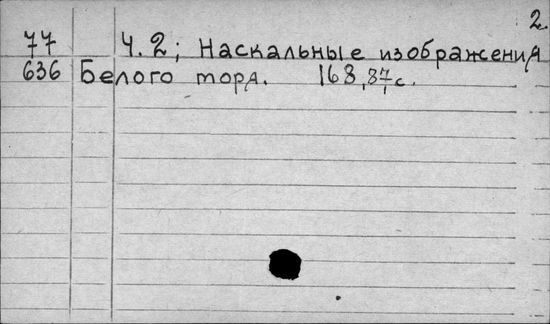 2.
77 Ч. 2; Наскальные изображения
636 Белого моря. 168, 87 с.